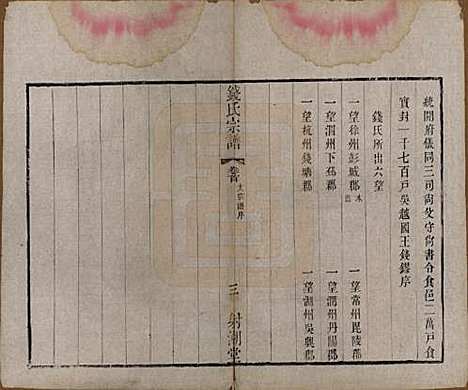 統開府儀同三司尚父守尚書令食邑二萬戶食
實封一千七百戶吳越國王錢鏐序
錢氏所出六望
一望徐州彭城郡 一望常州毘陵郡
一望泗州下邳郡 一望潤州丹陽郡
一望杭州錢塘郡 一望湖州吳興郡
錢氏宗譜
卷首
三
射潮堂